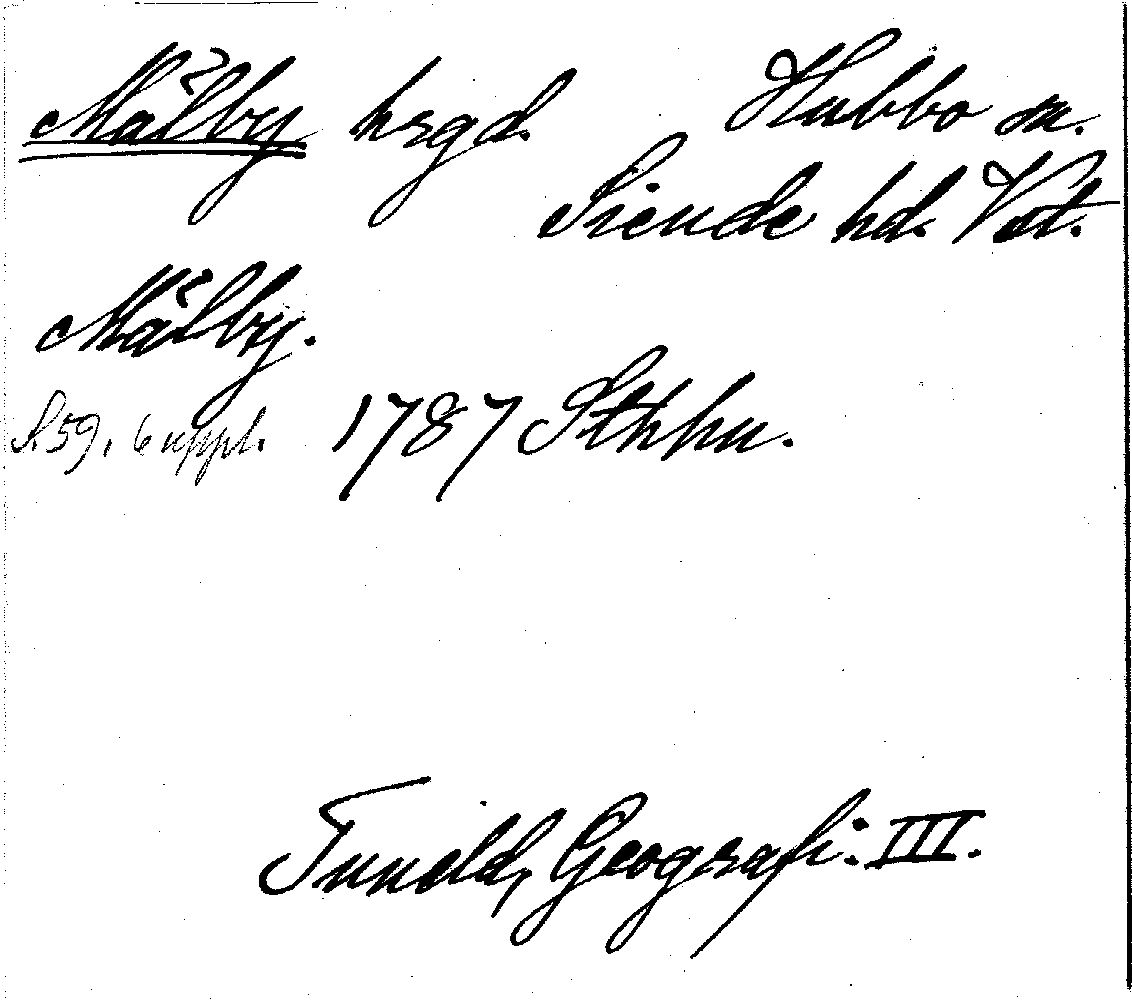 Målby hrgd. Hubbo sn.
Siende hd. Vstl.
Målby.
S. 59. 6 uppl. 1787 Sthhn.
Tuneld, Geografi. III.